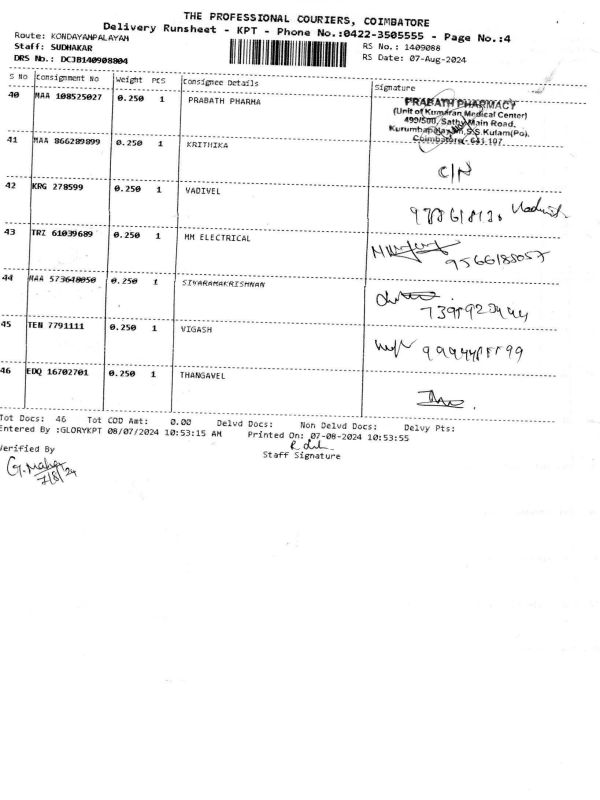 THE PROFESSIONAL COURIERS, COIMBATORE
Delivery Runsheet - KPT - Phone No.:0422-3505555 - Page No.:4
Route: KONDAYAMPALAYAM
RS No.: 1409088
Staff: SUDHAKAR
RS Date: 07-Aug-2024
DRS No.: DCJB140908804
S No Consignment No Weight PCS Consignee Details Signature
40 MAA 108525027 0.250 1 PRABATH PHARMA
PRABATH PHARMACY
(Unit of Kumaran Medical Center)
499/500, Sathy Main Road,
Kurumbapalayam, S.S.Kulam(Po).
Coimbatore - 641 107
41 MAA 866289899 0.250 1 KRITHIKA
C/N
42 KRG 278599 0.250 1 VADIVEL
43 TRZ 61039689 0.250 1 MM ELECTRICAL
9566185057
44 MAA 573648050 0.250 1 SIVARAMAKRISHNAN
45 TEN 7791111 0.250 1 VIGASH
46 EDQ 16702701 0.250 1 THANGAVEL
Tot Docs: 46 Tot COD Amt: 0.00 Delvd Docs: Non Delvd Docs: Delvy Pts:
Entered By :GLORYKPT 08/07/2024 10:53:15 AM Printed On: 07-08-2024 10:53:55
Verified By
Staff Signature
7/8/24